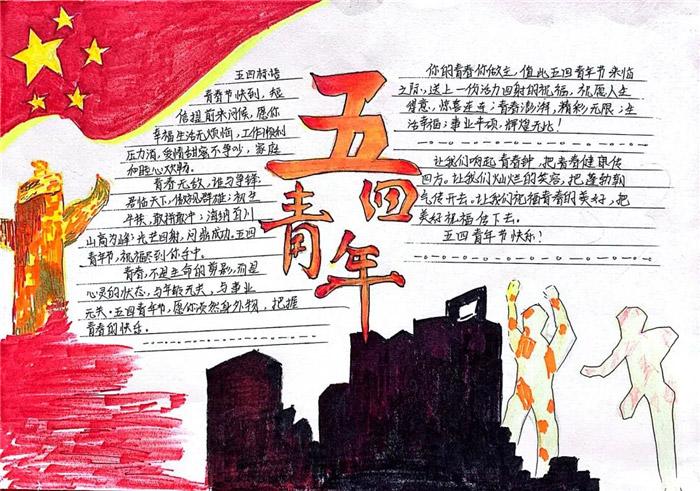 五四祝语
青春节快到,短
信提前来问候,愿你
幸福生活无烦恼,工作顺利
压力消,爱情甜蜜不争吵,家庭
和睦心欢畅。
青春无敌,谁与争锋:
君临天下,傲视群雄:初生
牛犊,敢拼敢冲:海纳百川
山高为峰:光芒四射,闪耀成功。五四
青年节,祝福只到你手中。
青春,不是生命的剪影,而是
心灵的状态,与年龄无关,与事业
无关。五四青年节,愿你淡然身外物,把握
青春的快乐。
五四青年
你的青春你做主,值此五四青年节来临
之际,送上一份活力四射的祝福,祝愿人生
得意,惊喜连连:青春澎湃,精彩无限:生
活幸福:事业平顺,辉煌无比!
让我们响起青春钟,把青春健康传
四方。让我们灿烂的笑容,把蓬勃朝
气传开去。让我们祝福青春的美好,把
美好祝福传下去。
五四青年节快乐!